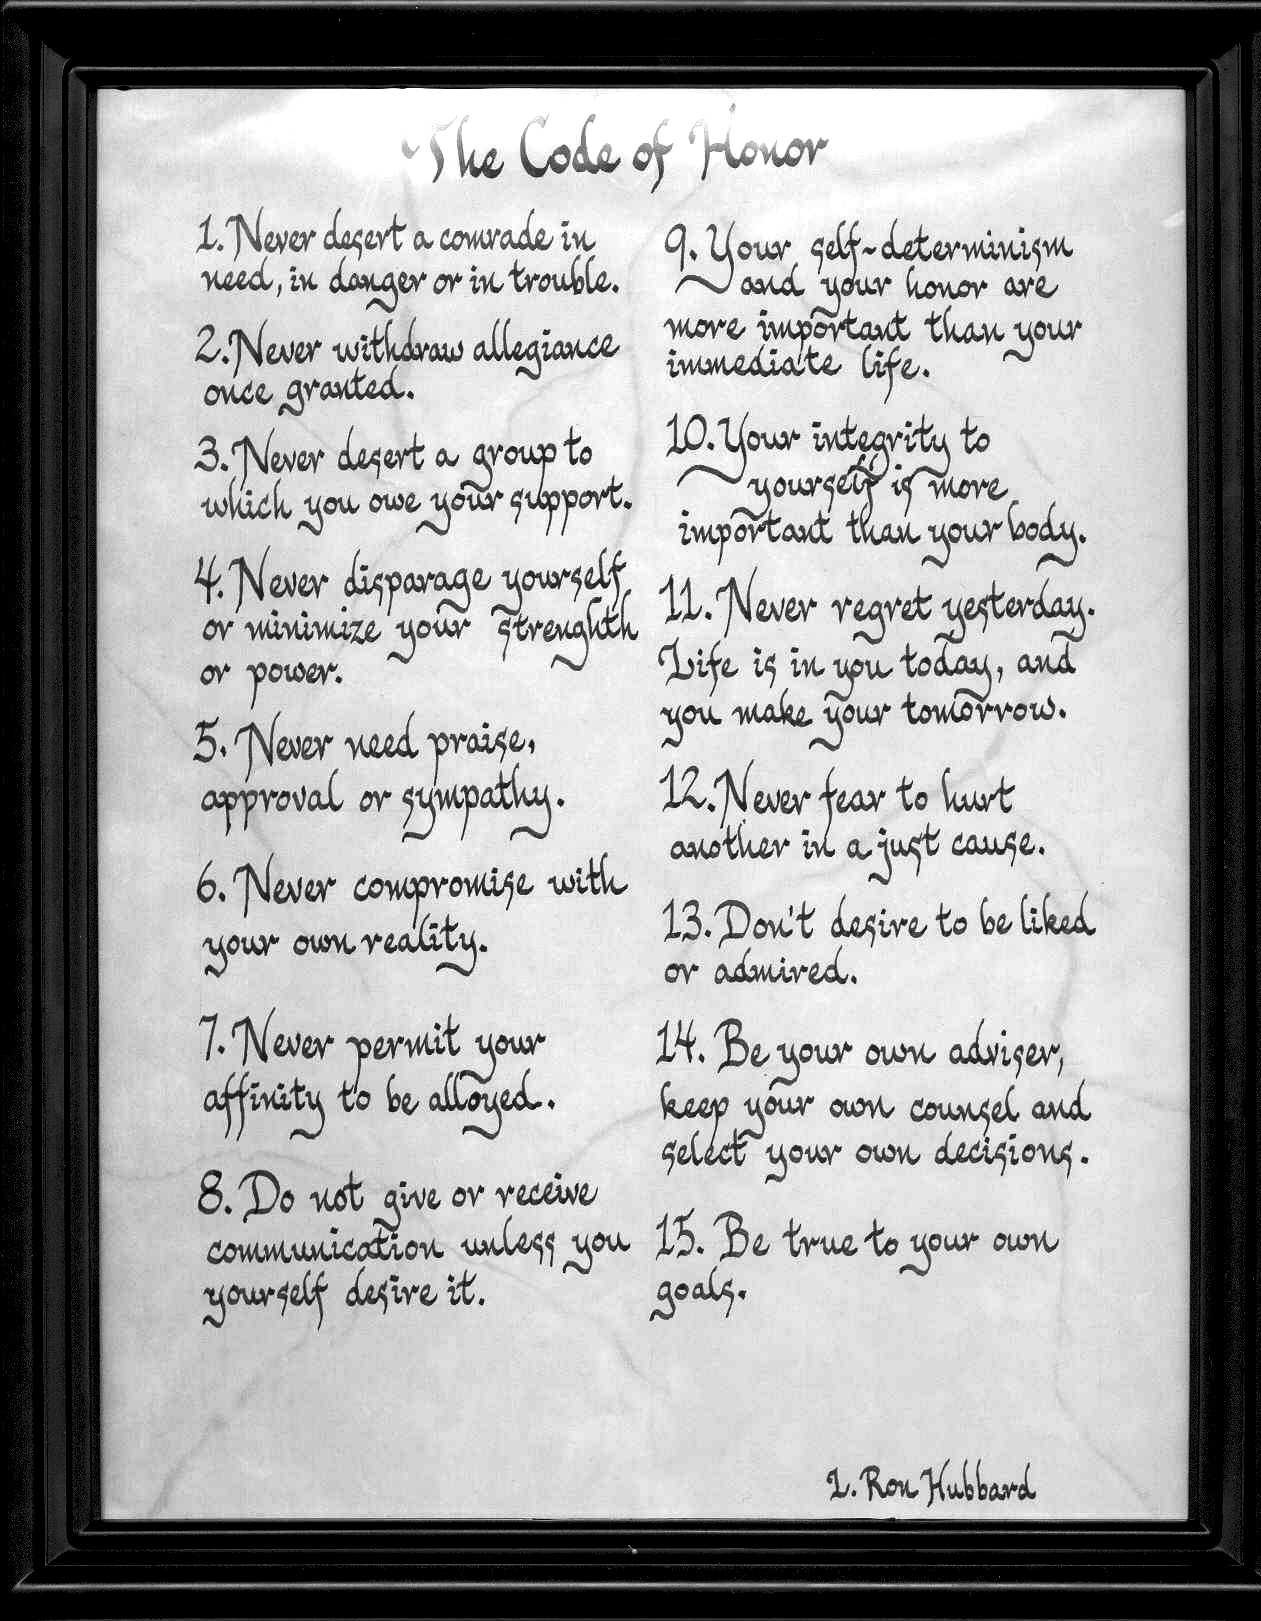 The Code of Honor
1. Never desert a comrade in
need, in danger or in trouble.
2. Never withdraw allegiance
once granted.
3. Never desert a group to
which you owe your support.
4. Never disparage yourself
or minimize your strenghth
or power.
5. Never need praise,
approval or sympathy.
6. Never compromise with
your own reality.
7. Never permit your
affinity to be alloyed.
8. Do not give or receive
communication unless you
yourself desire it.
9. Your self-determinism
and your honor are
more important than your
immediate life.
10. Your integrity to
yourself is more
important than your body.
11. Never regret yesterday.
Life is in you today, and
you make your tomorrow.
12. Never fear to hurt
another in a just cause.
13. Don't desire to be liked
or admired.
14. Be your own adviser,
keep your own counsel and
select your own decisions.
15. Be true to your own
goals.
L. Ron Hubbard